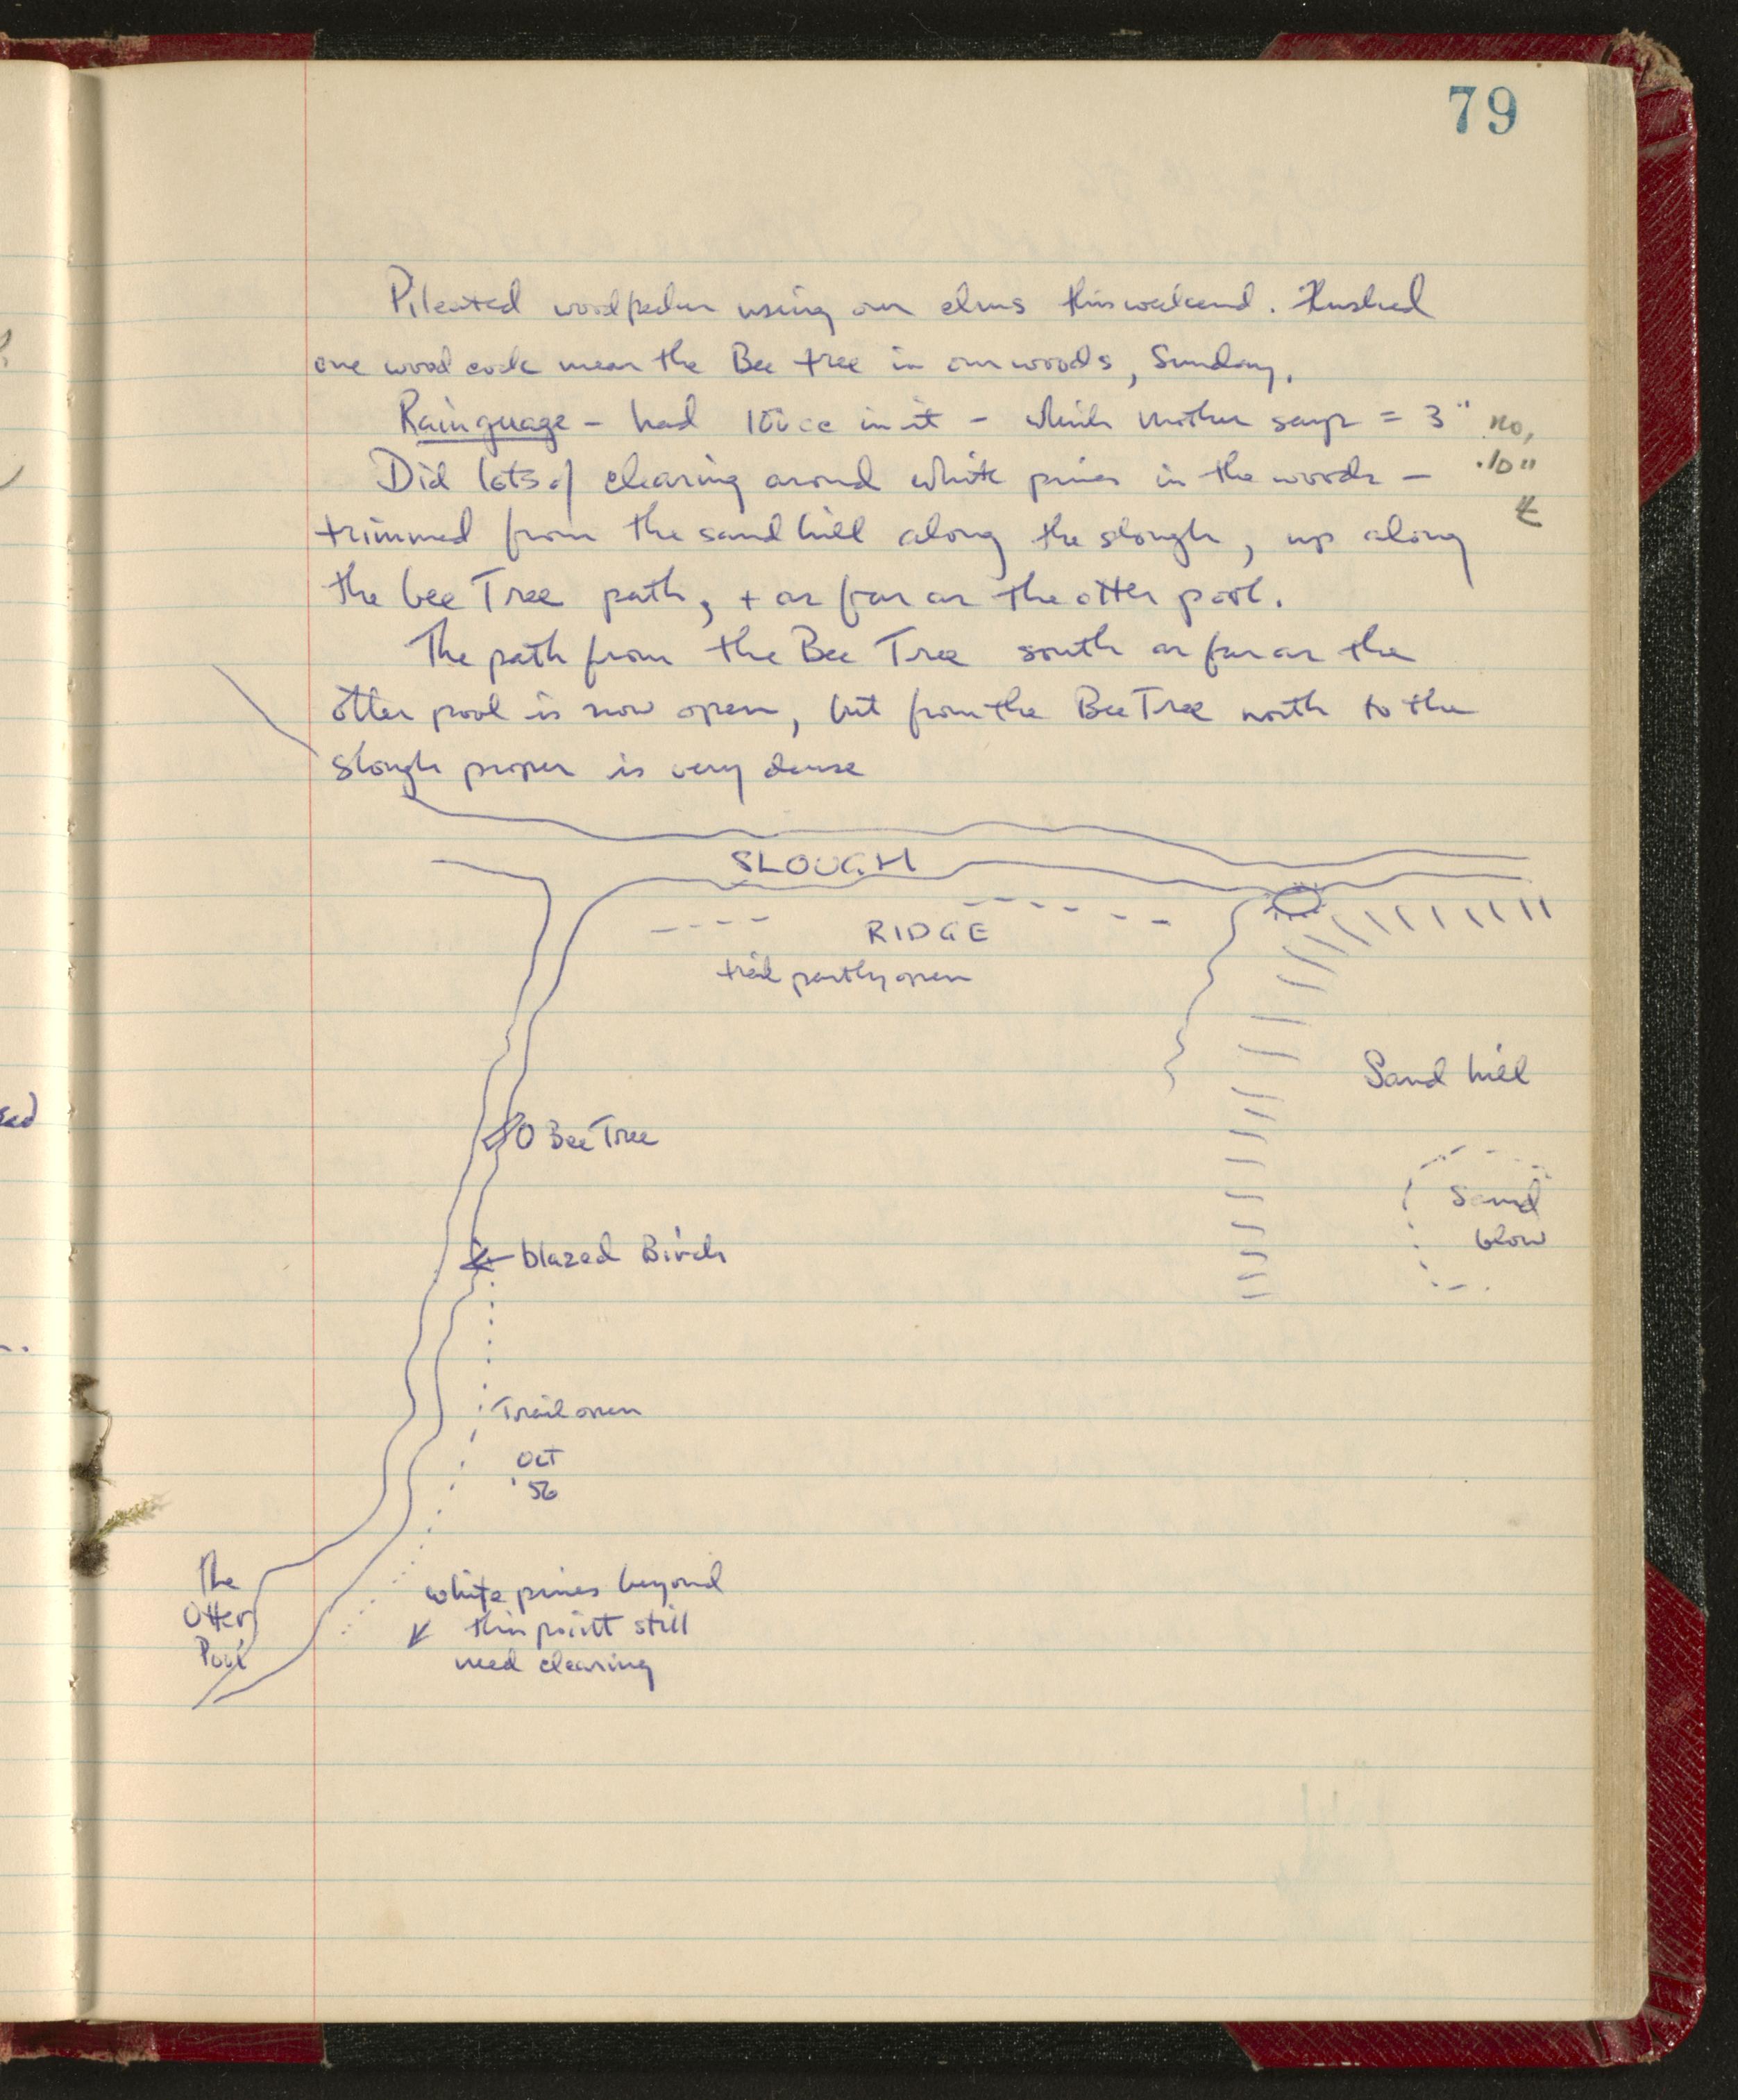 79
Pileated woodpecker using our elms this weekend. Flushed
one wood cock near the Bee tree in our woods, Sunday.
Rainguage – had 10 cc in it – which mother says = 3" no,
.10"
Did lots of clearing around white pines in the woods –
trimmed from the sand hill along the slough, up along
the bee Tree path, + as far as the otter pool.
The path from the Bee Tree south as far as the
otter pool is now open, but from the Bee Tree north to the
slough proper is very dense
SLOUGH
RIDGE
trail partly open
Sand hill
Bee Tree
Sand
blow
blazed Birch
Trail open
Oct
'56
The
Otter
Pool
white pines beyond
this point still
need clearing